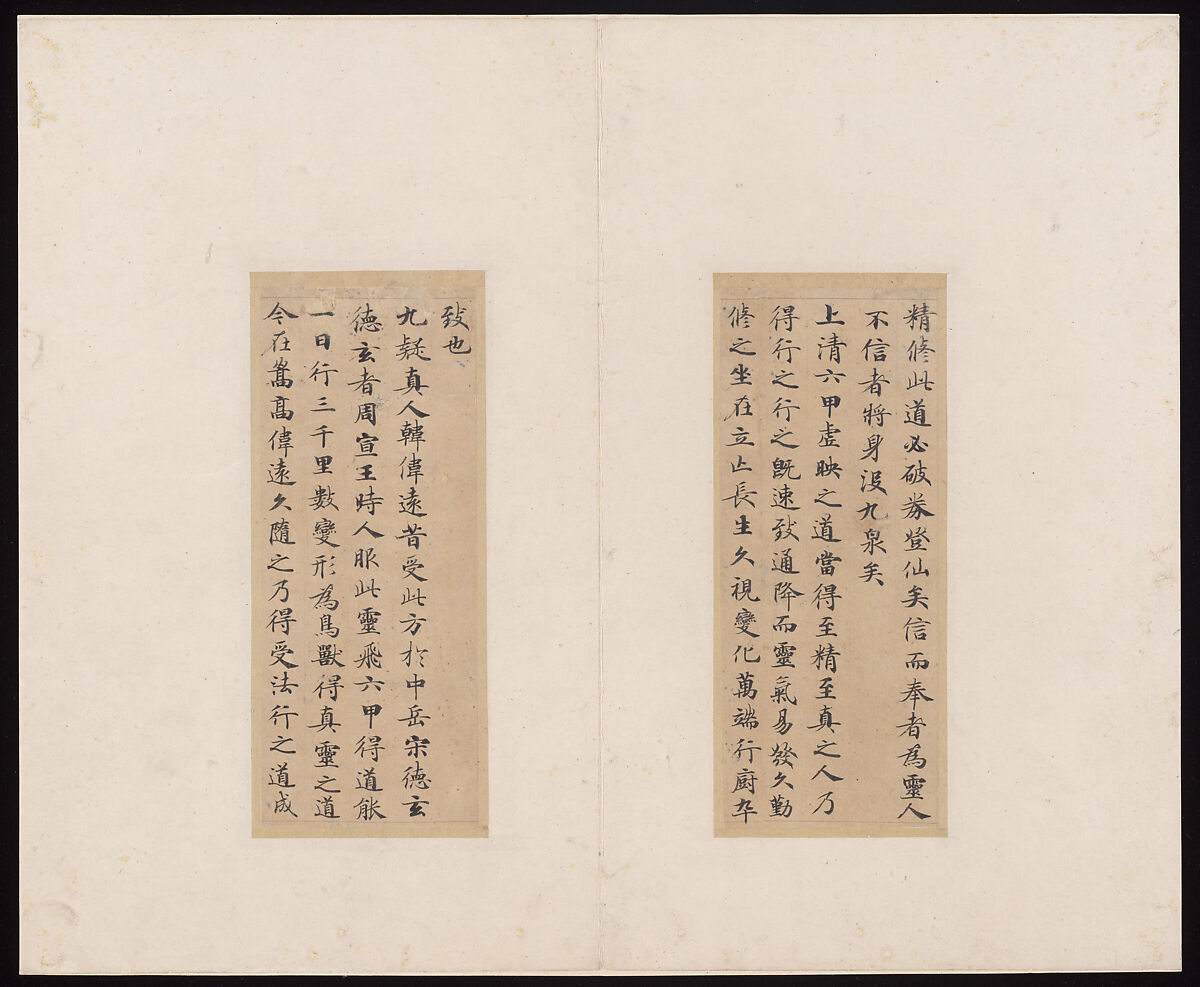 精修此道必破券登仙矣信而奉者為靈人
不信者將身沒九泉矣
上清六甲虛映之道當得至精至真之人乃
得行之行之既速致通降而靈氣易發久勤
修之坐在立亡長生久視變化萬端行廚卒
致也
九疑真人韓偉遠昔受此方於中岳宋德玄
德玄者周宣王時人服此靈飛六甲得道能
一日行三千里數變形為鳥獸得真靈之道
今在嵩高偉遠久隨之乃得受法行之道成